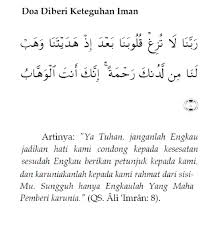 Doa Diberi Keteguhan Iman
رَبَّنَا لَا تُزِغْ قُلُوبَنَا بَعْدَ إِذْ هَدَيْتَنَا وَهَبْ
لَنَا مِن لَّدُنكَ رَحْمَةً ۚ إِنَّكَ أَنتَ الْوَهَّابُ
Artinya: "Ya Tuhan, janganlah Engkau
jadikan hati kami condong kepada kesesatan
sesudah Engkau berikan petunjuk kepada kami,
dan karuniakanlah kepada kami rahmat dari sisi-
Mu. Sungguh hanya Engkaulah Yang Maha
Pemberi karunia." (QS. Âli 'Imrân: 8).